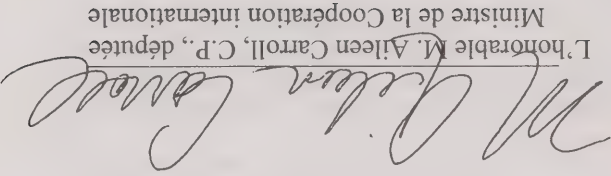 M Aileen Carroll
L'honorable M. Aileen Carroll, C.P., députée
Ministre de la Coopération internationale